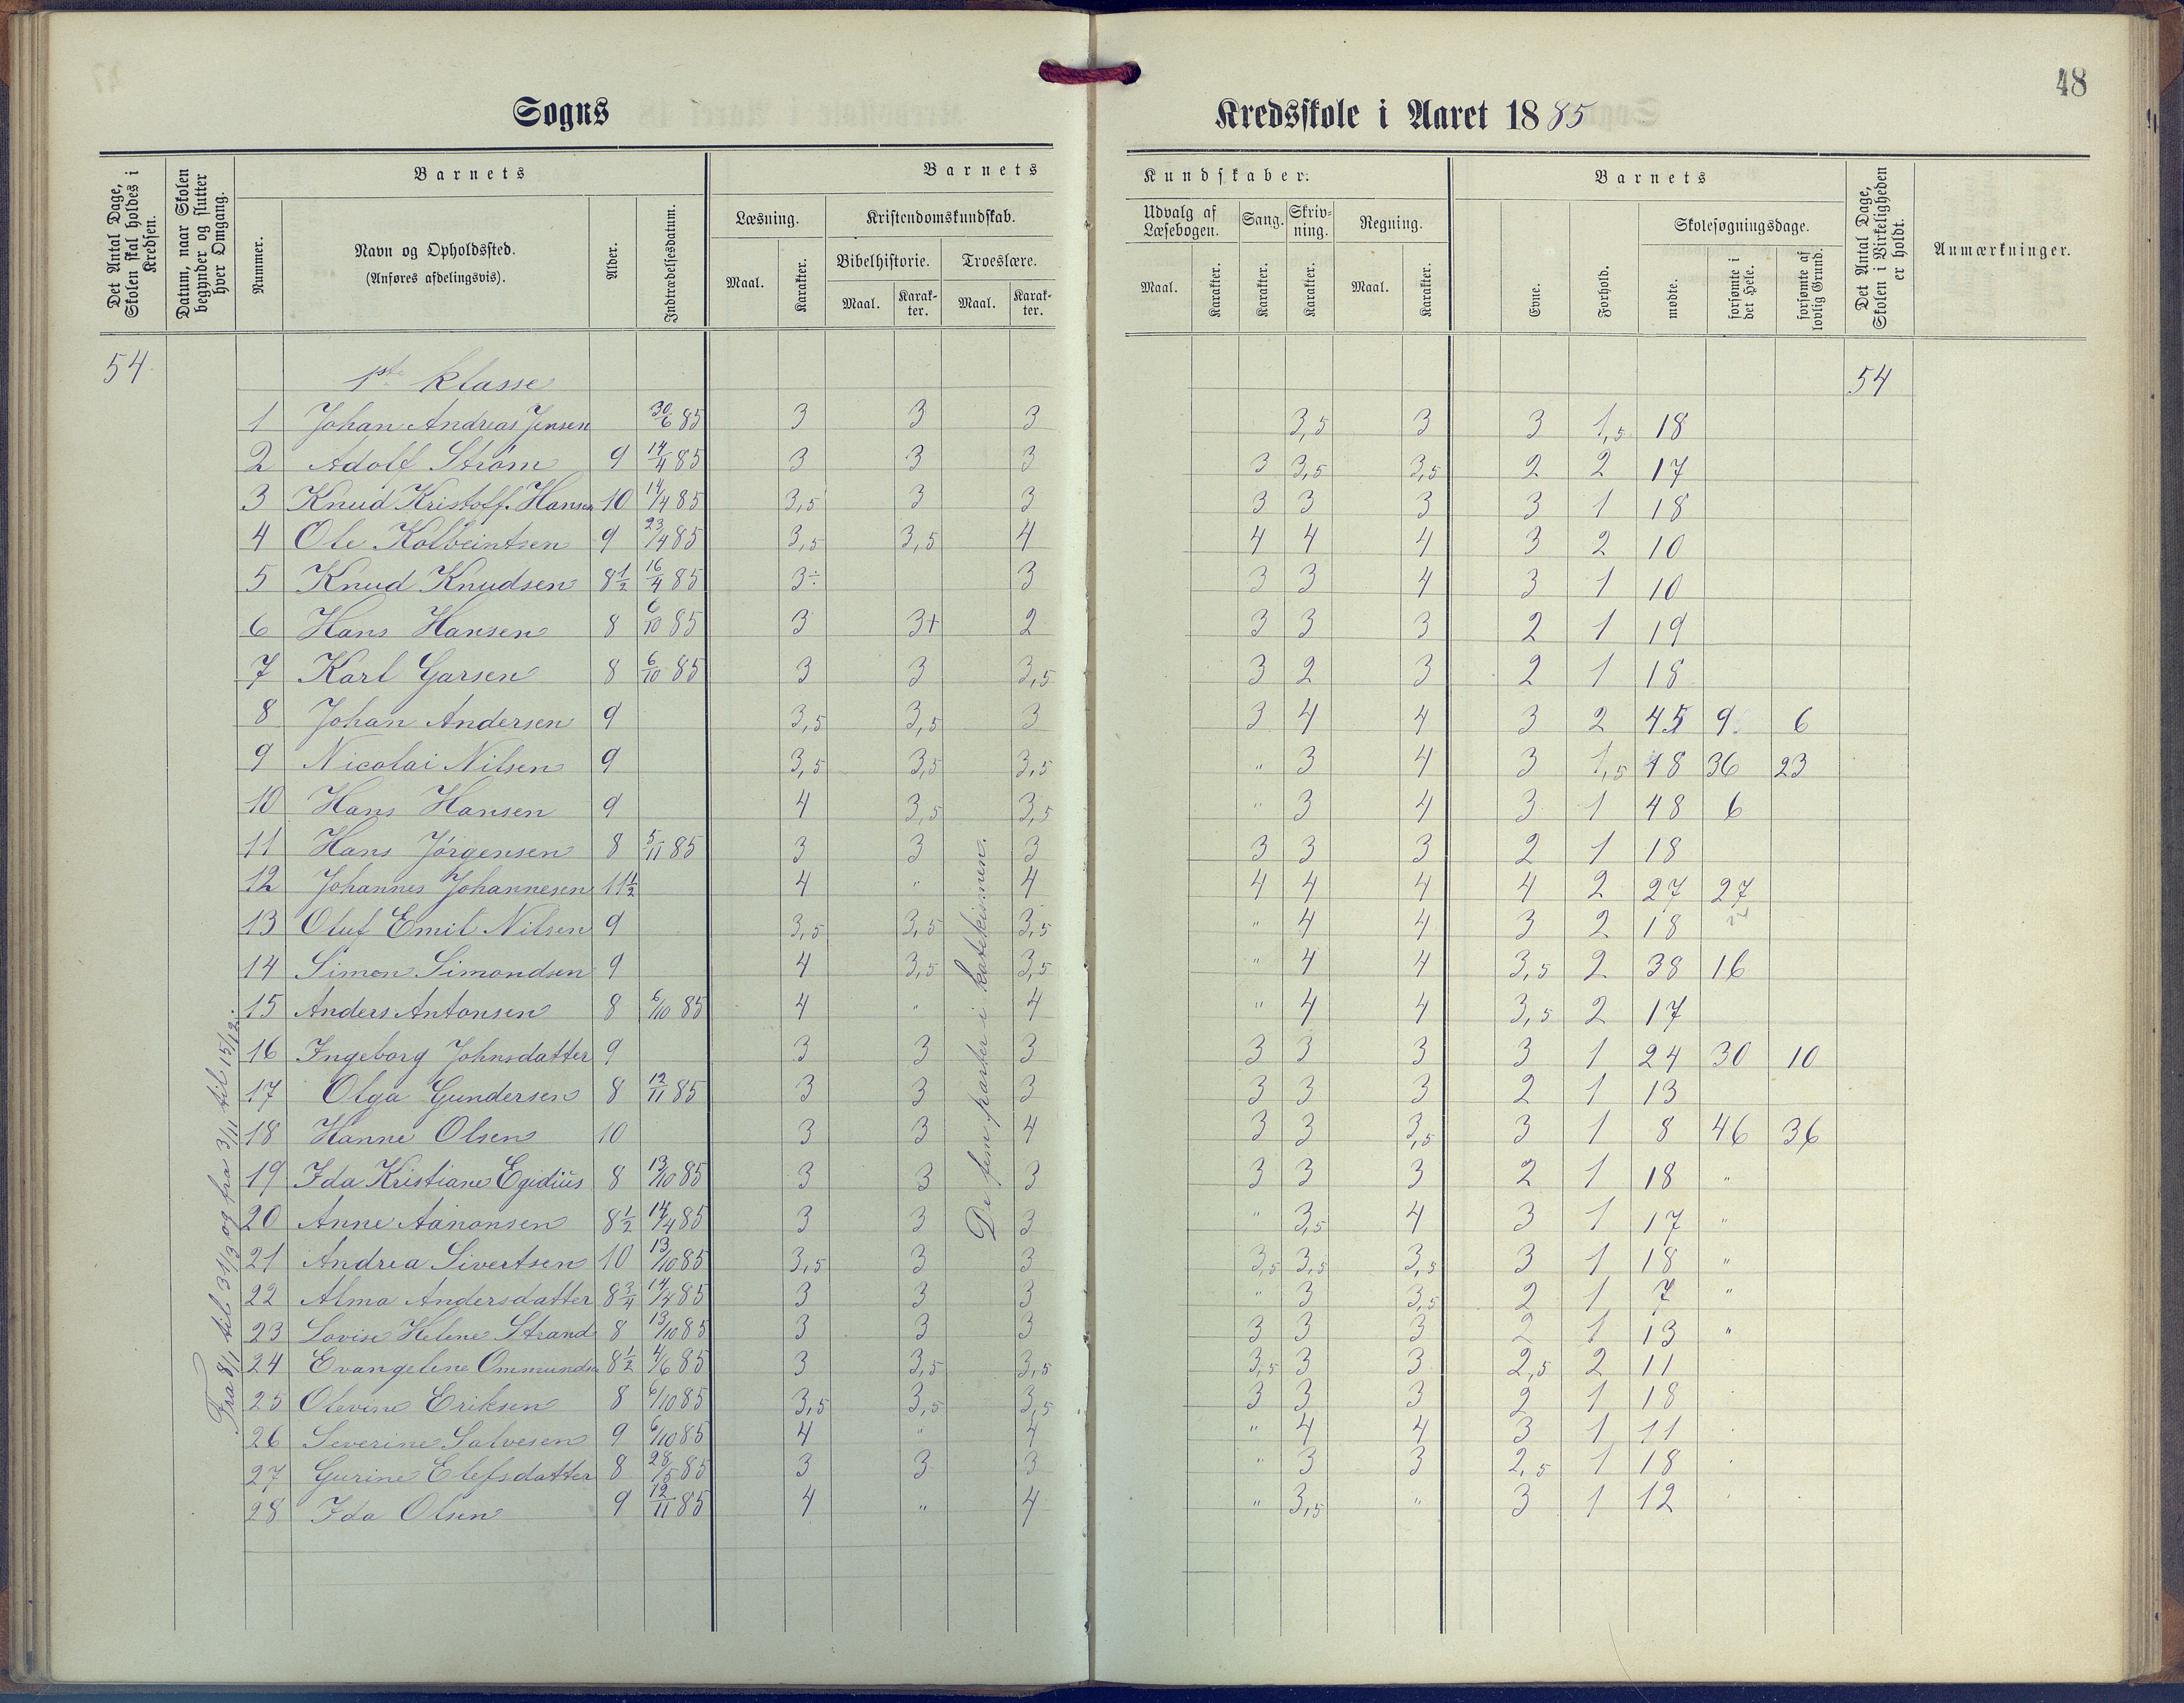 48
Sogns
Kredsskole i Aaret 1885
Det Antal Dage, Skolen skal holdes i Kredsen.
Datum, naar Skolen begynder og slutter hver Omgang.
Barnets
Nummer.
Navn og Opholdssted.
(Anføres afdelingsvis).
Alder.
Indtrædelsesdatum.
Barnets
Læsning.
Maal.
Karakter.
Kristendomskundskab.
Bibelhistorie.
Maal.
Karakter.
Troeslære.
Maal.
Karakter.
Kundskaber.
Udvalg af Læsebogen.
Maal.
Karakter.
Sang.
Karakter.
Skrivning.
Karakter.
Regning.
Maal.
Karakter.
Barnets
Evne.
Forhold.
Skolesøgningsdage.
mødte.
forsømte i det Hele.
forsømte af lovlig Grund.
Det Antal Dage, Skolen i Virkeligheden er holdt.
Anmærkninger.
54
1ste klasse
54
1 Johan Andreas Jensen 30/6 85 3 3 3 3,5 3 3 1,5 18
2 Adolf Strøm 9 14/4 85 3 3 3 3 3,5 3,5 2 2 17
3 Knud Kristoff. Hansen 10 14/4 85 3,5 3 3 3 3 3 3 1 18
4 Ole Kolbeintsen 9 23/4 85 3,5 3,5 4 4 4 4 3 2 10
5 Knud Knudsen 8½ 16/4 85 3÷ 3 3 3 4 3 1 10
6 Hans Hansen 8 6/10 85 3 3+ 2 3 3 3 2 1 19
7 Karl Garsen 8 6/10 85 3 3 3,5 3 2 3 2 1 18
8 Johan Andersen 9 3,5 3,5 3 3 4 4 3 2 45 9 6
9 Nicolai Nilsen 9 3,5 3,5 3,5 " 3 4 3 1,5 18 36 23
10 Hans Hansen 9 4 3,5 3,5 " 3 4 3 1 48 6
11 Hans Jörgensen 8 5/11 85 3 3 3 3 3 3 2 1 18
12 Johannes Johannesen 11½ 4 " 4 4 4 4 4 2 27 27
13 Oluf Emil Nilsen 9 3,5 3,5 3,5 " 4 4 3 2 18
14 Simon Simondsen 9 4 3,5 3,5 " 4 4 3,5 2 38 16
15 Anders Antonsen 8 6/10 85 4 " 4 " 4 4 3,5 2 17
16 Ingeborg Johnsdatter 9 3 3 3 3 3 3 3 1 24 30 10
17 Olga Gundersen 8 12/11 85 3 3 3 3 3 3 2 1 13
18 Hanne Olsen 10 3 3 4 3 3 3,5 3 1 8 46 36
19 Ida Kristiane Egidius 8 13/10 85 3 3 3 3 3 3 2 1 18 "
20 Anne Aanonsen 8½ 14/4 85 3 3 3 " 3,5 4 3 1 17 "
21 Andrea Sivertsen 10 13/10 85 3,5 3 3 3,5 3,5 3,5 3 1 18 "
22 Alma Andersdatter 8¾ 14/4 85 3 3 3 " 3 3,5 2 1 7 "
23 Lovise Helene Strand 8 13/10 85 3 3 3 3 3 3 2 1 13 "
24 Evangeline Ommundsen 8½ 4/6 85 3 3,5 3,5 3,5 3 3 2,5 2 11
25 Olevine Eriksen 8 6/10 85 3,5 3,5 3,5 3 3 3 2 1 18
26 Severine Salvesen 9 6/10 85 4 " 4 " 4 4 3 1 11
27 Gurine Elefsdatter 8 28/5 85 3 3 3 " 3 3 2,5 1 18
28 Ida Olsen 9 12/11 85 4 " 4 " 3,5 " 3 1 12
Fra 8/1 til 31/3 og fra 3/11 til 15/12.
De fem parter i katekismen.